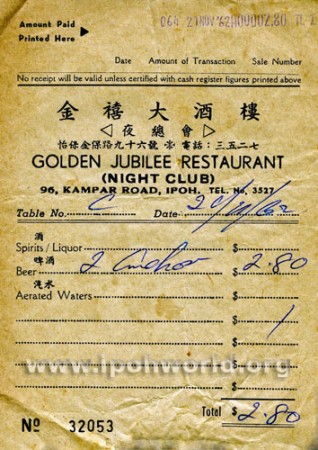 Amount Paid
Printed Here
064 21 NOV '62 H0000Z.80 TL
Date Amount of Transaction Sale Number
No receipt will be valid unless certified with cash register figures printed above
金禧大酒樓
◁夜總會▷
怡保金保路九十六號 電話:三五二七
GOLDEN JUBILEE RESTAURANT
(NIGHT CLUB)
96, KAMPAR ROAD, IPOH. TEL. No. 3527
Table No. C Date 20/11/62
酒
Spirits / Liquor $
啤酒
Beer 2 Anchor $ 2.80
汽水
Aerated Waters $
$
$
$
$
www.ipohworld.org
No 32053 Total $ 2.80